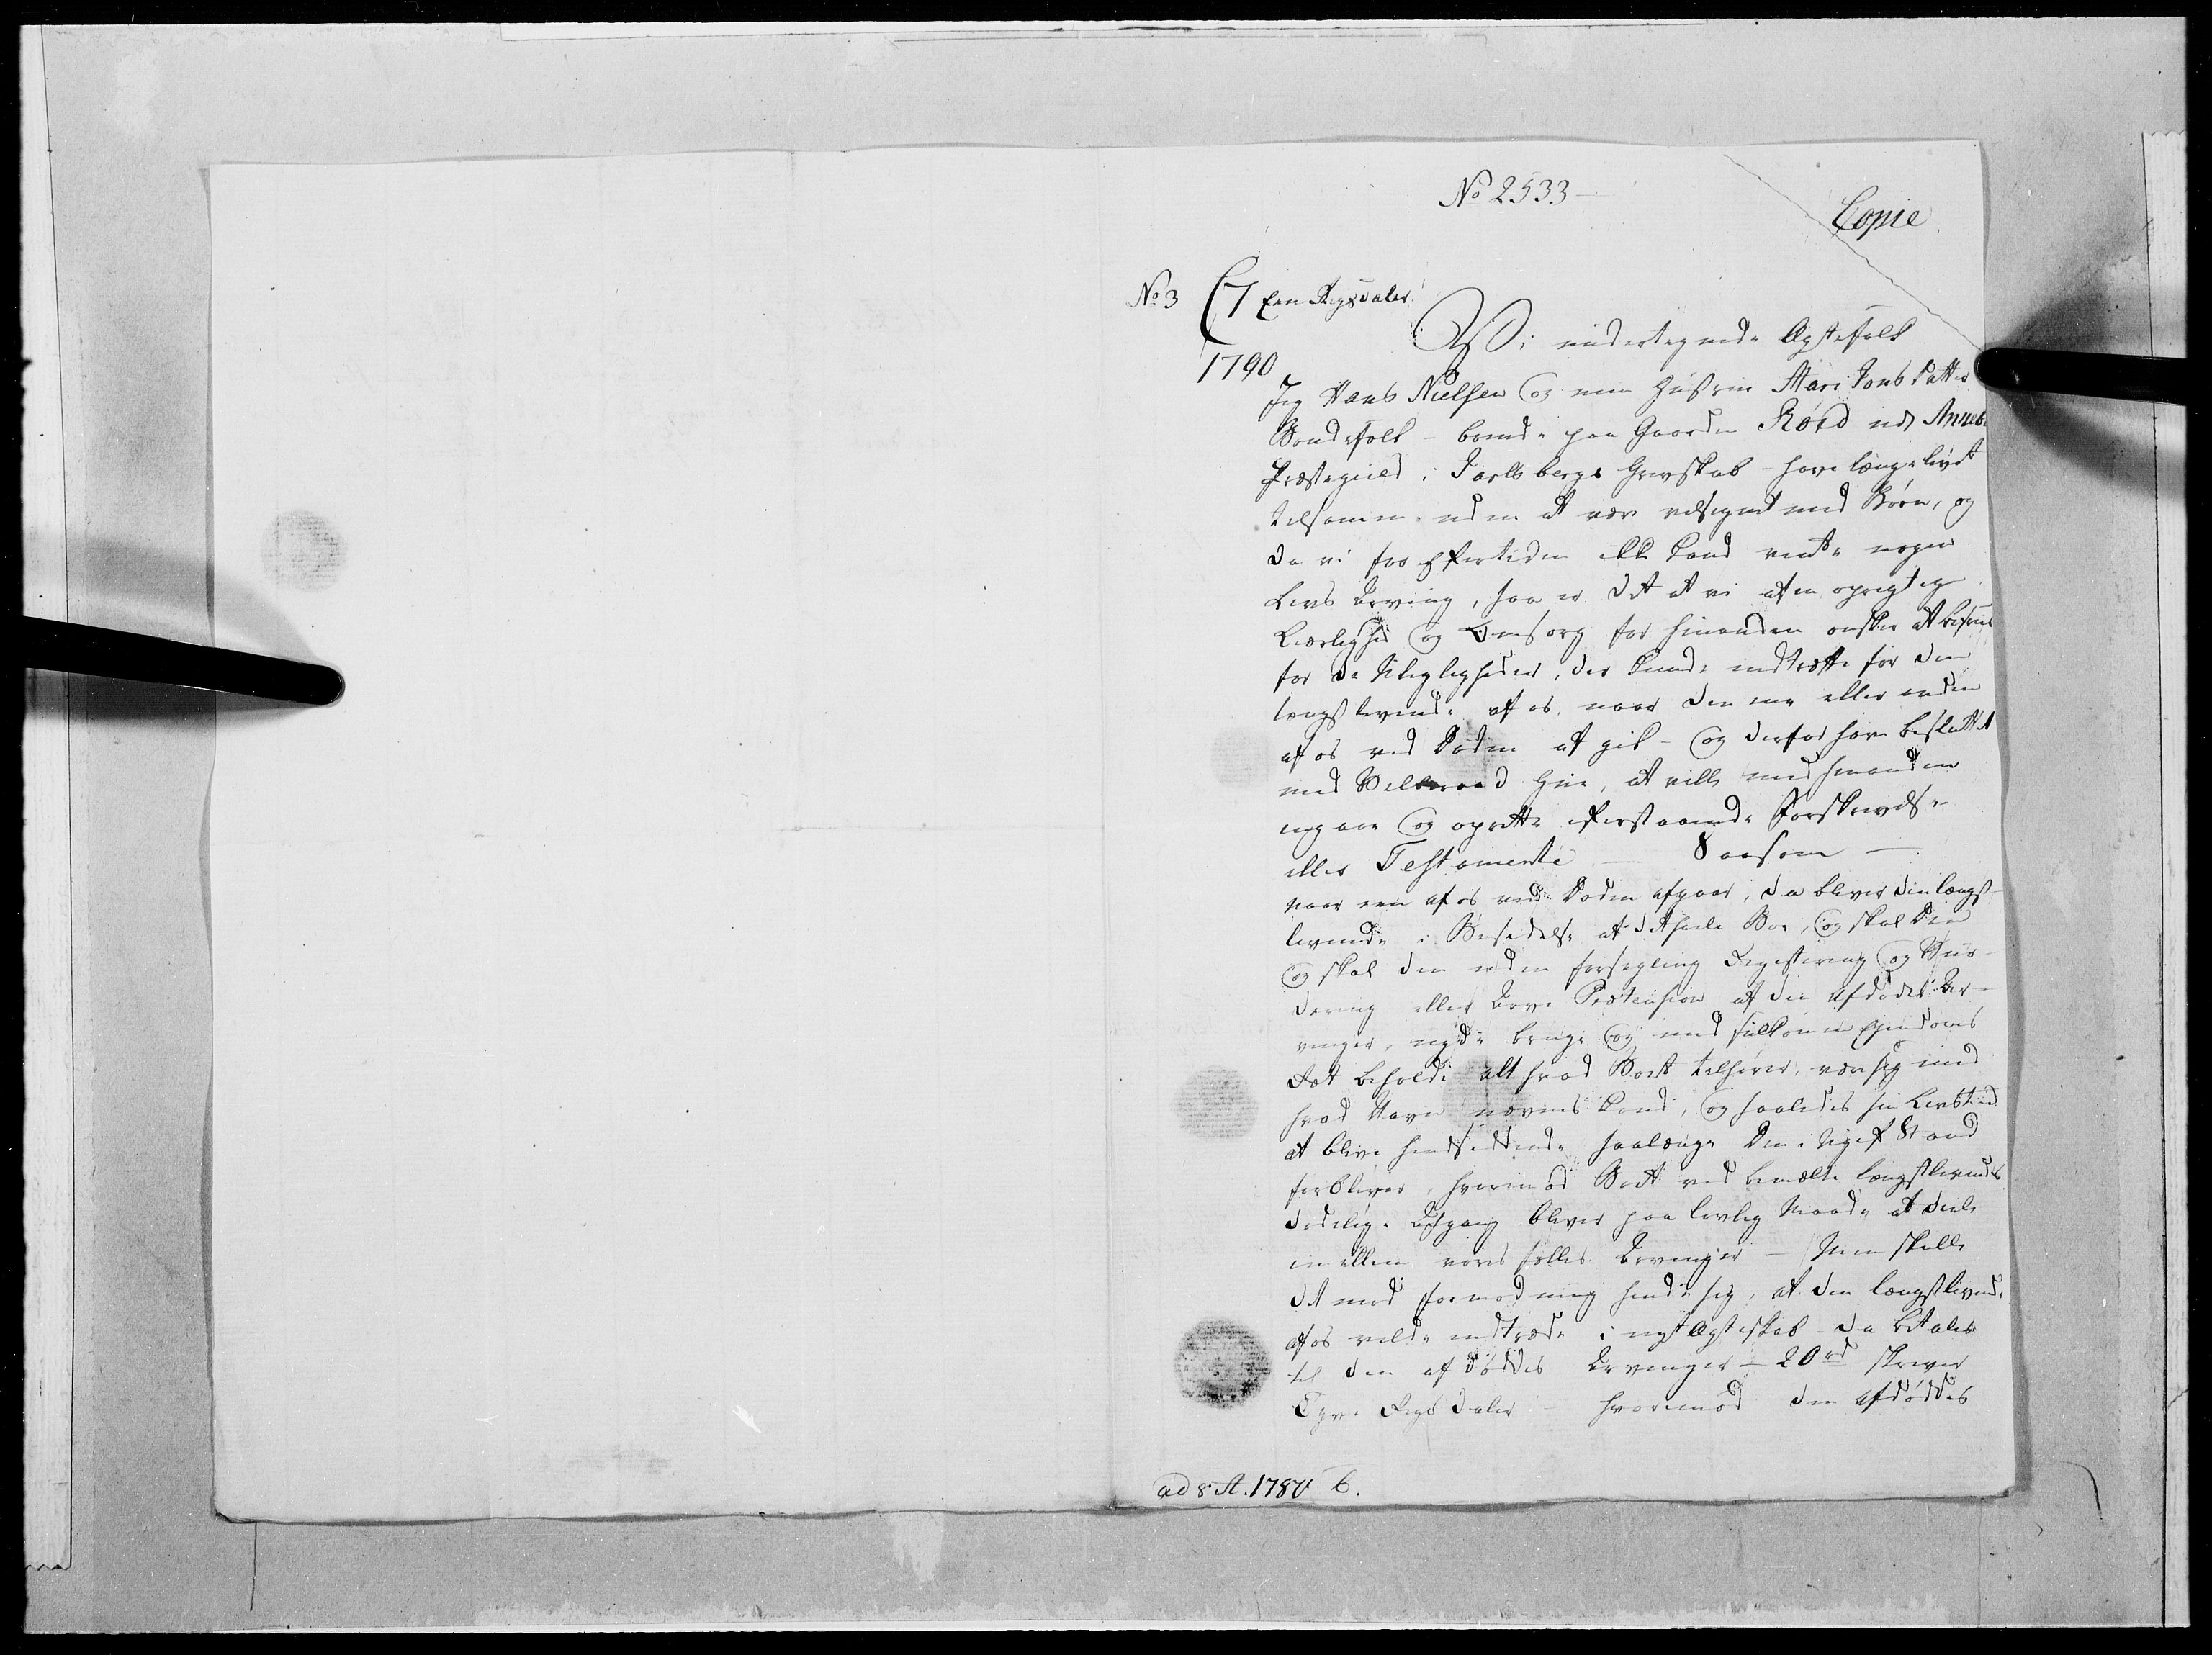 No 2533
Copie
No 3 C7 Een Rigsdaler
1790
Wi undertegnede Ægtefolk
Jeg Hans Nielsen og min Hustrue Mari Jons Datter
Bondefolk - boende paa Gaarden Röed udj Annebu
Præstegield i Jarlsbergs Grevskab - have længe levet
tilsamen uden at være velsignet med Börn, og
da vi for Eftertiden ikke kand vente nogen
Livs Arving, saa er det at vi af en oprigtig
Kiærlighed og Omsorg for hinanden ønsker at befries
for de Uleyligheder, der kunde indtræffe for den
længstlevende af os, naar den ene eller anden
af os ved Døden afgik - og derfor have besluttet
med Velberaad Hue, at ville med hinanden
indgaae og oprette efterstaaende Forskrivelse
eller Testamente - Saasom -
naar een af os ved Døden afgaar, da bliver den længst
levende i Besiddelse af det heele Boe, og skal den
og skal den uden forsegling Registering og Vur-
dering eller Lovs Prætension af den afdødes Ar-
vinger, nyde bruge og med fuldkomen Ejendoms
Ret beholde alt hvad Boet tilhører, være sig med
hvad Navn nævnes kand, og saaledes sin Livstid
at blive hensiddende saalænge den i Ugift Stand
forbliver, hvorimod Boet ved bemælte længstlevendes
dødelige Afgang bliver paa lovlig Maade at deele
imellem vores fælles Arvinger - Men skulle
det mod formodning hende sig, at den længstlevende
af os vilde indtræde i nyt Ægteskab - da betales
til den afdøddes Arvinger - 20 rd skriver
Tyve Rigsdaler hvorimod den afdøddes
ad 8 A. 1787 6.